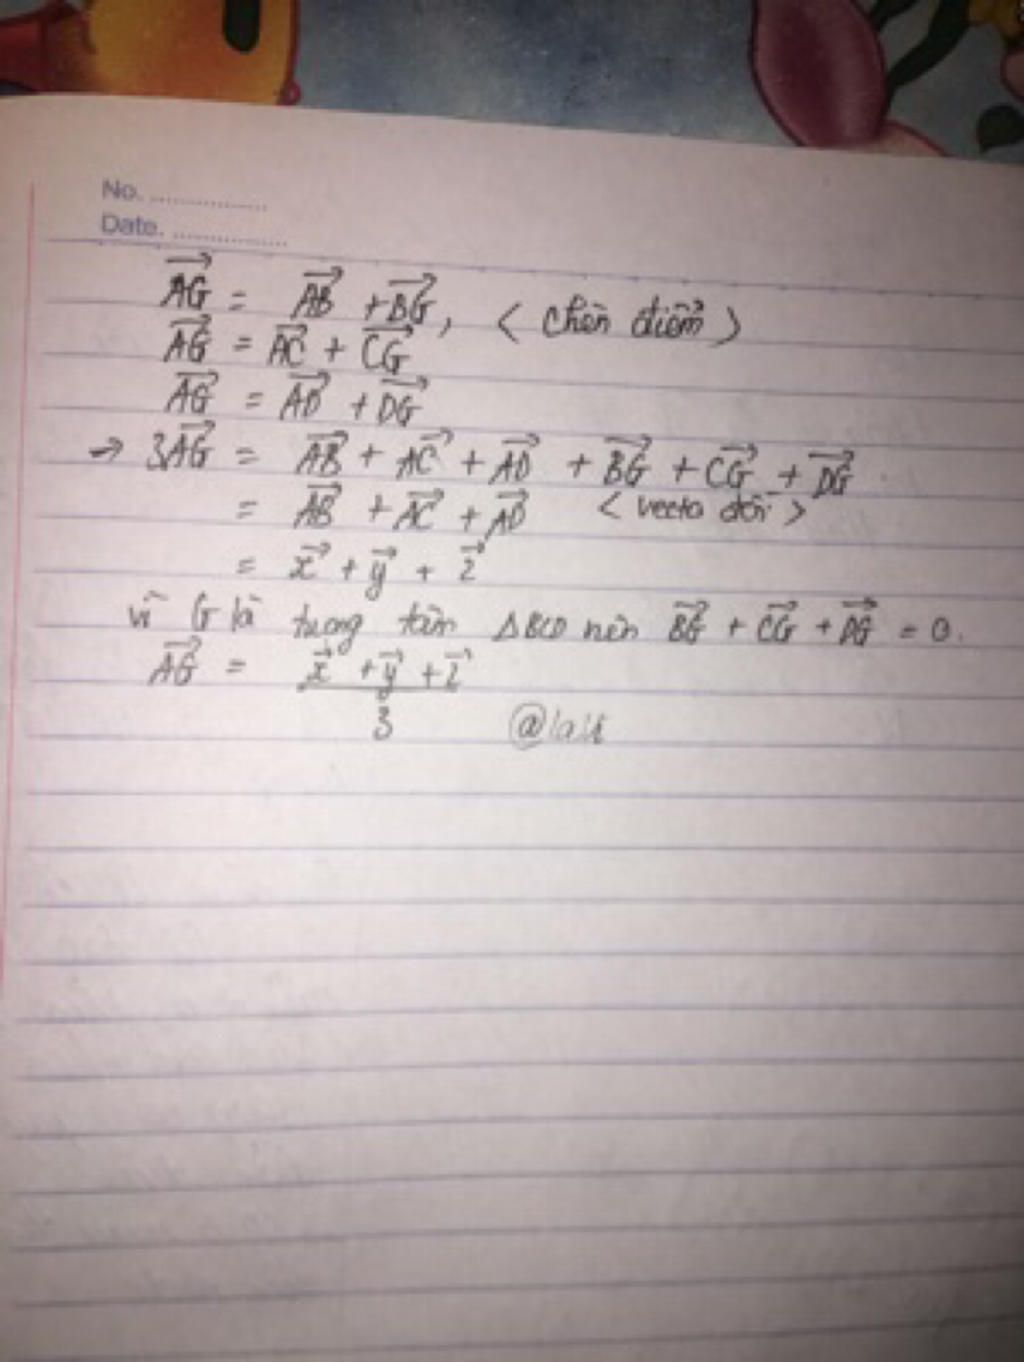 No. ................
Date. ................
$\overrightarrow{AG} = \overrightarrow{AB} + \overrightarrow{BG}$, < chèn điểm >
$\overrightarrow{AG} = \overrightarrow{AC} + \overrightarrow{CG}$
$\overrightarrow{AG} = \overrightarrow{AD} + \overrightarrow{DG}$
→ $3\overrightarrow{AG} = \overrightarrow{AB} + \overrightarrow{AC} + \overrightarrow{AD} + \overrightarrow{BG} + \overrightarrow{CG} + \overrightarrow{DG}$
$= \overrightarrow{AB} + \overrightarrow{AC} + \overrightarrow{AD}$ < vecto đối >
$= \vec{x} + \vec{y} + \vec{z}$
vì G là trọng tâm ΔBCD nên $\overrightarrow{BG} + \overrightarrow{CG} + \overrightarrow{DG} = 0$.
$\overrightarrow{AG} = \frac{\vec{x} + \vec{y} + \vec{z}}{3}$